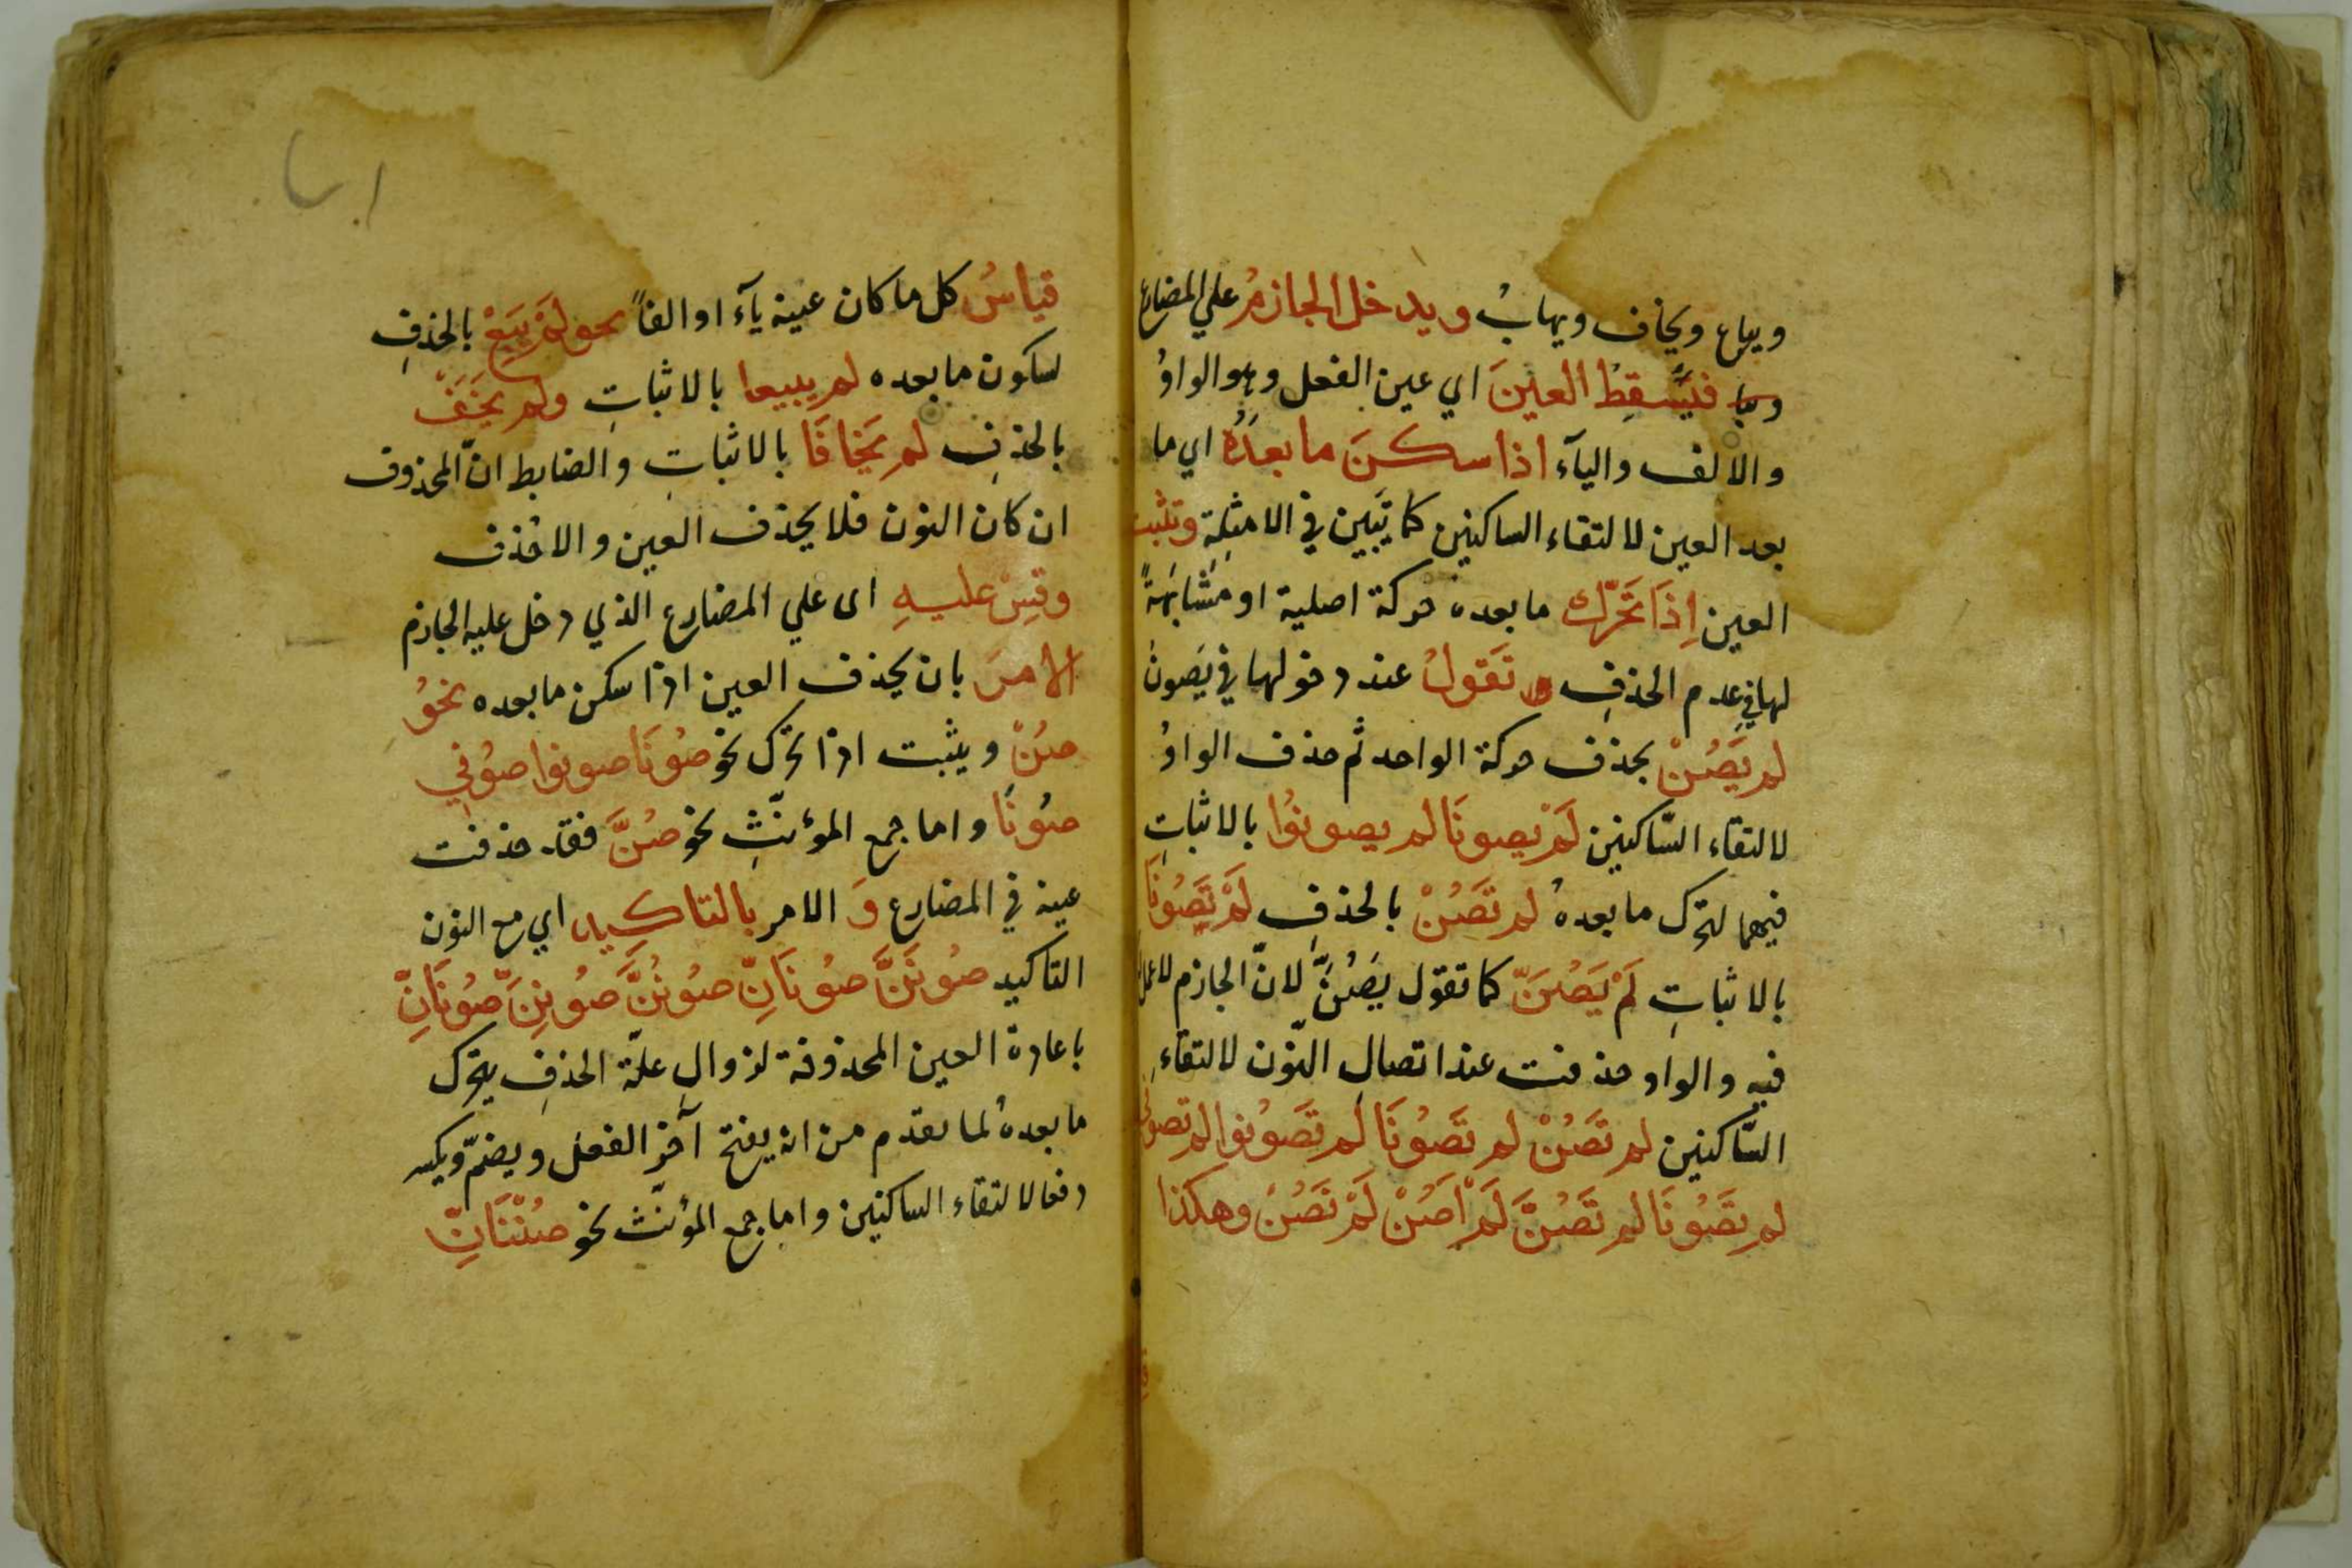 ويباع ويخاف ويهابُ ويدخل الجازمُ علي المضارع
فيَسقِطُ العينَ اي عين الفعل وهو الواوُ
والالف واليآء اذا سكنَ ما بعدَهُ اي ما
بعد العين لالتقاء الساكنين كما تبيين في الامثلة وتثبت
العين اِذَا تَحَرَّك ما بعده حركة اصلية او مشابهةً
لها في عدم الحذفِ تَقولُ عند دخولها في يَصونُ
لم يَصُنْ بحذف حركة الواحد ثم حذف الواوُ
لالتقاء السّاكنين لَمْ يصونَا لم يصونُوا بالاثباتِ
فيهما لتحرك ما بعدهُ لم تَصُنْ بالحذفِ لَمْ تَصُونَا
بالاثباتِ لَمْ يَصُنَّ كما تقول يَصُنَّ لانّ الجازم لا عمل
فيه والواو حذفت عند اتصالِ النّون لالتقاءِ
السّاكنين لم تَصُنْ لم تَصُونَا لم تَصُونوا لم تصونى
لم تَصُونَا لم تَصُنَّ لَمْ اَصُنْ لَمْ نَصُن وهكذا
قياسُ كل ما كان عينه يآء او الفاً نحو لَمْ يَبِعْ بالحذفِ
لسكون ما بعده لم يبيعا بالاثباتِ ولم يَخَفْ
بالحذفِ لم يَخافَا بالاثباتِ والضابط انّ المحذوف
ان كان النون فلا يحذف العين والا حُذف
وقِسْ عليهِ اى علي المضارع الذي دخل عليه الجازم
الامرَ بان يحذف العين اذا سكن ما بعده نحوُ
صُنْ ويثبت اذا تحرك نحو صُونَا صونوا صُونِي
صُونَا واما جمع المؤنّثِ نحو صُنَّ فقد حذفت
عينه في المضارع وَ الامر بالتاكيد اي مع النون
التاكيد صُونَنَّ صُونَانِّ صُونُنَّ صُونِنَّ صُونَانِّ
باعادة العين المحذوفة لزوالِ علّة الحذفِ بتحرك
ما بعدهُ لما تقدّم من انه يفتح آخر الفعل ويضمّ ويكسر
دفعا لالتقاء الساكنين واما جمع المؤنّث نحو صُنْنَانِّ